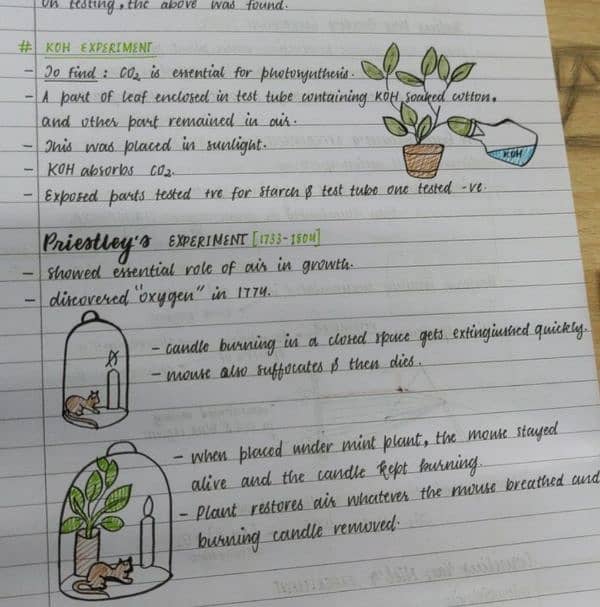 On testing, the above was found.
# KOH EXPERIMENT
- To Find : CO₂ is essential for photosynthesis.
- A part of leaf enclosed in test tube containing KOH soaked cotton,
and other part remained in air.
- This was placed in sunlight.
- KOH absorbs CO₂.
- Exposed parts tested +ve for starch & test tube one tested -ve.
KOH
Priestley's EXPERIMENT [1733-1804]
- showed essential role of air in growth.
- discovered "oxygen" in 1774.
- candle burning in a closed space gets extingiushed quickly.
- mouse also suffocates & then dies.
- when placed under mint plant, the mouse stayed
alive and the candle kept burning.
- Plant restores air whatever the mouse breathed and
burning candle removed.